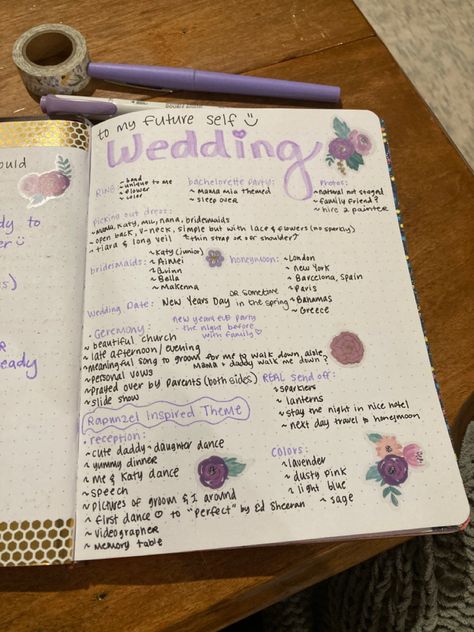 ould
dy to
s)
R
eady
to my future self
Wedding
RING:
~ band
~ unique to me
~ flower
~ color
bachelorette party:
~ Mama Mia themed
~ sleep over
Photos:
~ natural not staged
~ family friend?
~ hire 2 painter
Picking out dress:
~ Mama, Katy, Mil, nana, bridemaids
~ open back, v-neck, simple but with lace & flowers (no sparkly)
~ tiara & long veil
~ thin strap or off shoulder?
bridemaids:
~ Katy (junior)
~ Aimei
~ Quinn
~ Bella
~ Makenna
honeymoon:
~ London
~ New York
~ Barcelona, Spain
~ Paris
~ Bahamas
~ Greece
Wedding Date: New Years Day OR sometime in the spring
new years eve party
the night before
with family
Ceremony:
~ beautiful church
~ late afternoon/evening
~ meaningful song to groom for me to walk down aisle
~ personal vows
Mama + daddy walk me down?
~ prayed over by parents (both sides)
~ slide show
REAL send off:
~ sparklers
~ lanterns
~ stay the night in nice hotel
~ next day travel to honeymoon
Rapunzel Inspired Theme
reception:
~ cute daddy-daughter dance
~ yummy dinner
~ me & Katy dance
~ speech
~ pictures of groom & I around
~ first dance to "Perfect" by Ed Sheeran
~ videographer
~ memory table
Colors:
~ lavender
~ dusty pink
~ light blue
~ sage